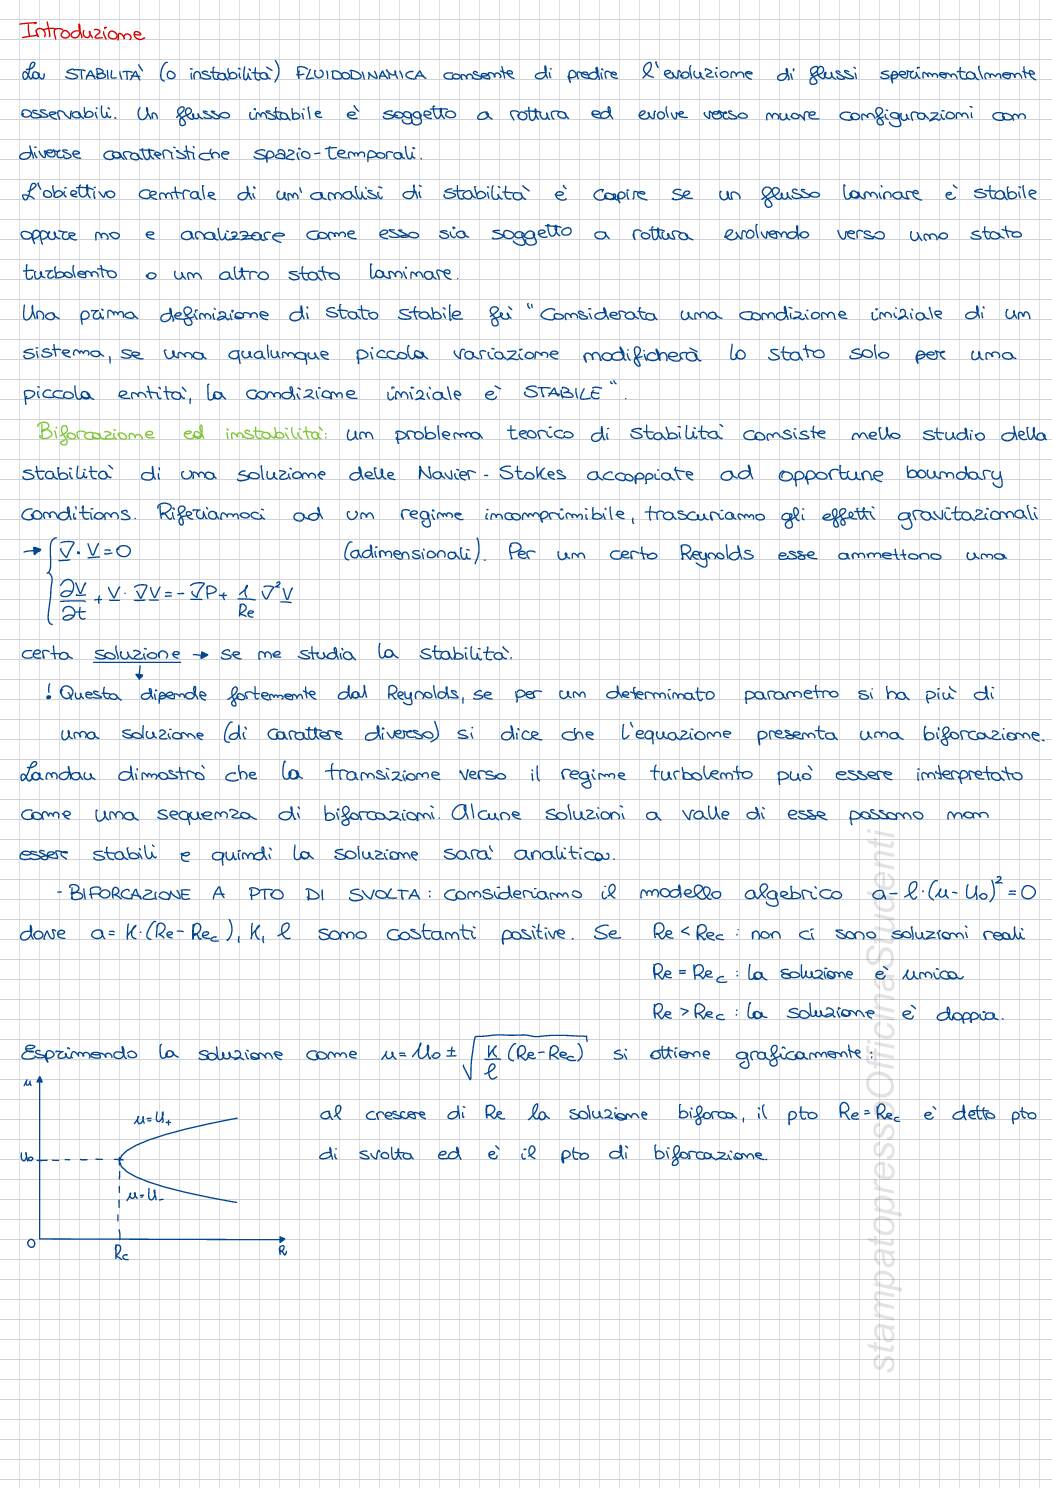 Introduzione
La STABILITÀ (o instabilità) FLUIDODINAMICA consente di predire l'evoluzione di flussi sperimentalmente
osservabili. Un flusso instabile è soggetto a rottura ed evolve verso nuove configurazioni con
diverse caratteristiche spazio-temporali.
L'obiettivo centrale di un'analisi di stabilità è capire se un flusso laminare è stabile
oppure no e analizzare come esso sia soggetto a rottura evolvendo verso uno stato
turbolento o un altro stato laminare.
Una prima definizione di stato stabile fu "Considerata una condizione iniziale di un
sistema, se una qualunque piccola variazione modificherà lo stato solo per una
piccola entità, la condizione iniziale è STABILE".
Biforcazione ed instabilità: un problema teorico di stabilità consiste nello studio della
stabilità di una soluzione delle Navier-Stokes accoppiate ad opportune boundary
conditions. Riferiamoci ad un regime incomprimibile, trascuriamo gli effetti gravitazionali
→ { ∇·V=0 (adimensionali). Per un certo Reynolds esse ammettono una
∂V/∂t + V·∇V = -∇P + 1/Re ∇²V
certa soluzione → se ne studia la stabilità.
↓
! Questa dipende fortemente dal Reynolds, se per un determinato parametro si ha più di
una soluzione (di carattere diverso) si dice che l'equazione presenta una biforcazione.
Landau dimostrò che la transizione verso il regime turbolento può essere interpretato
come una sequenza di biforcazioni. Alcune soluzioni a valle di esse possono non
essere stabili e quindi la soluzione sarà analitica.
- BIFORCAZIONE A PTO DI SVOLTA: consideriamo il modello algebrico a-l·(u-U₀)²=0
dove a=K·(Re-Rec), K, l sono costanti positive. Se Re<Rec: non ci sono soluzioni reali
Re=Rec: la soluzione è unica
Re>Rec: la soluzione è doppia.
Esprimendo la soluzione come u=U₀ ± √(K/l (Re-Rec)) si ottiene graficamente:
u
u=U₊ al crescere di Re la soluzione biforca, il pto Re=Rec è detto pto
U₀ di svolta ed è il pto di biforcazione
u=U₋
0 Rc R
stampatopressoOfficinaStudenti